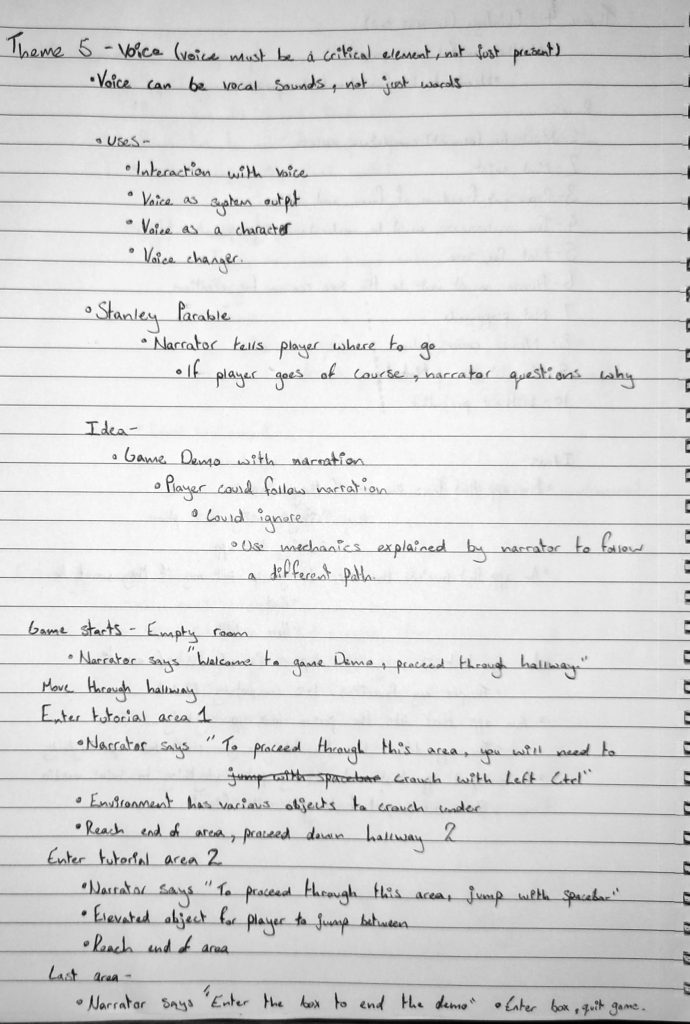 Theme 5 - Voice (voice must be a critical element, not just present)
• Voice can be vocal sounds, not just words
• Uses-
• Interaction with voice
• Voice as system output
• Voice as a character
• Voice changer.
• Stanley Parable
• Narrator tells player where to go
• If player goes of course, narrator questions why
Idea-
• Game Demo with narration
• Player could follow narration
• Could ignore
• Use mechanics explained by narrator to follow
a different path.
Game starts - Empty room
• Narrator says "Welcome to game Demo, proceed through hallway."
Move through hallway
Enter tutorial area 1
• Narrator says "To proceed through this area, you will need to
jump with spacebar crouch with Left Ctrl"
• Environment has various objects to crouch under
• Reach end of area, proceed down hallway 2
Enter tutorial area 2
• Narrator says "To proceed through this area, jump with spacebar"
• Elevated object for player to jump between
• Reach end of area
Last area-
• Narrator says "Enter the box to end the demo" • Enter box, quit game.